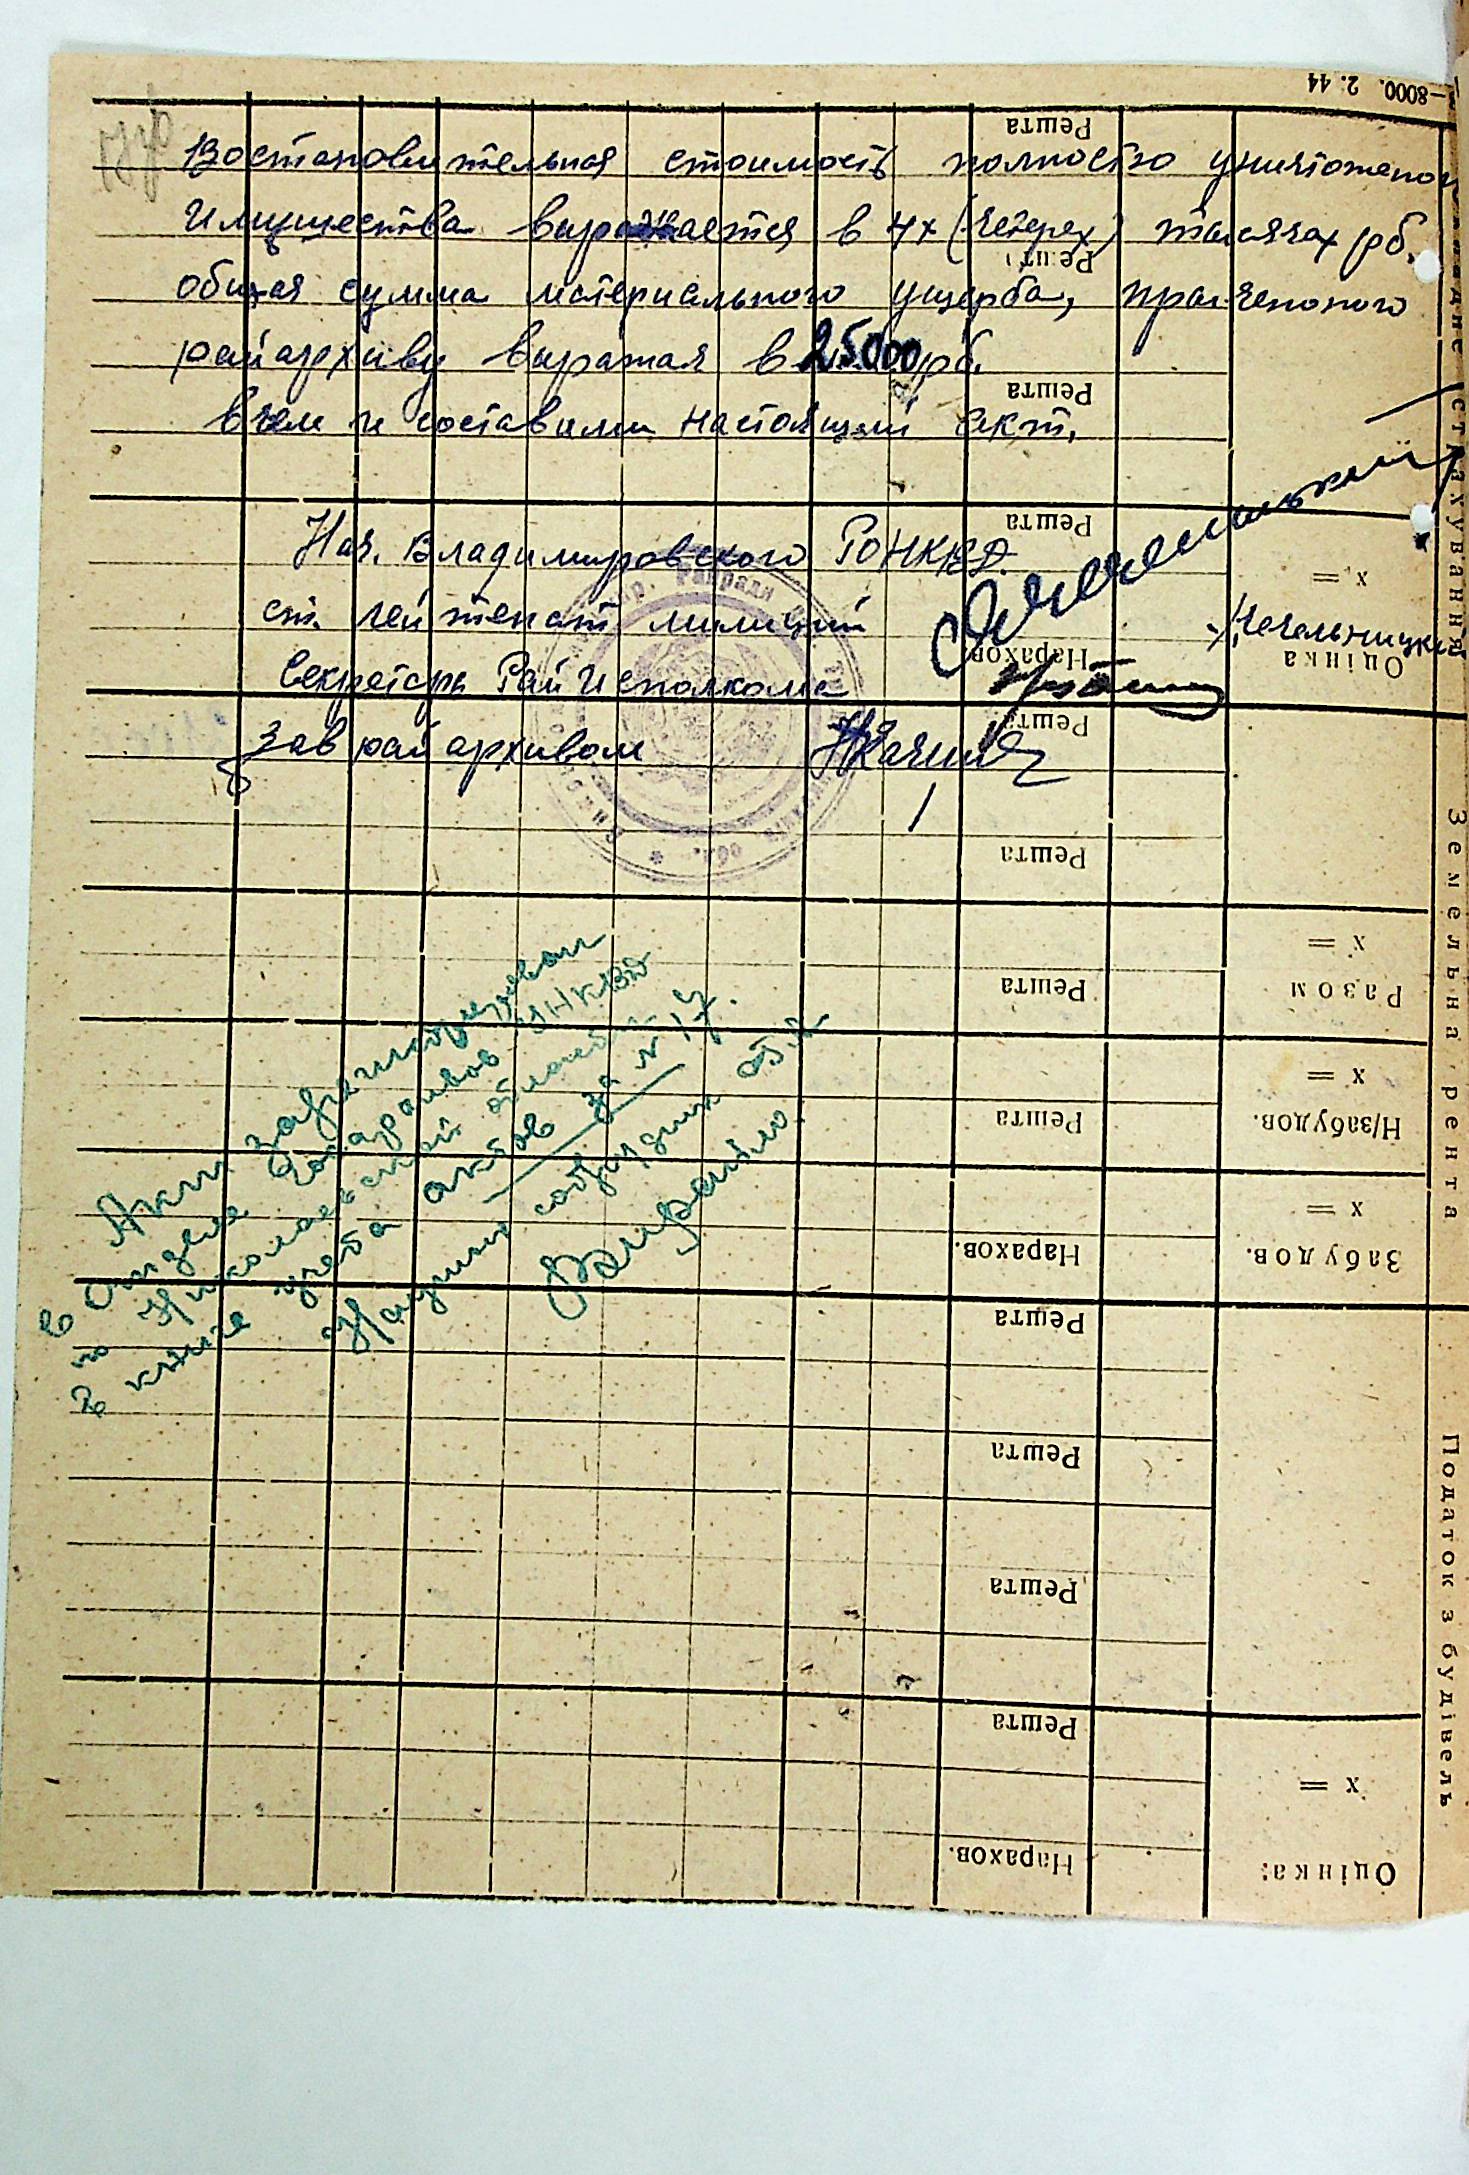 —8000. 2. 44
17об
Востановительная стоимость полностю уничтоженого
имущества выражается в 4х (четерех) тысячах рб.
общая сумма материального ущерба, причененого
райархиву выражая в 25000 рб.
в чем и составили настоящий акт.
Нач. Владимировского РОНКВД
ст. лейтенант милиции
/Чечельницкий
Секретарь Райисполкома
Зав райархивом
Акт зарегистрирован
в Отделе Госархивов УНКВД
по Николаевской области
в книге учета актов за № 17.
Научный сотрудник
Решта
Решта
Решта
Решта
Нарахов.
Решта
Решта
Решта
Решта
Нарахов.
Решта
Решта
Решта
Решта
Нарахов.
х =
Оцінка
х =
Разом
х =
Н/забудов.
х =
Забудов.
х =
Оцінка:
страхування
Земельна рента
Податок з будівель